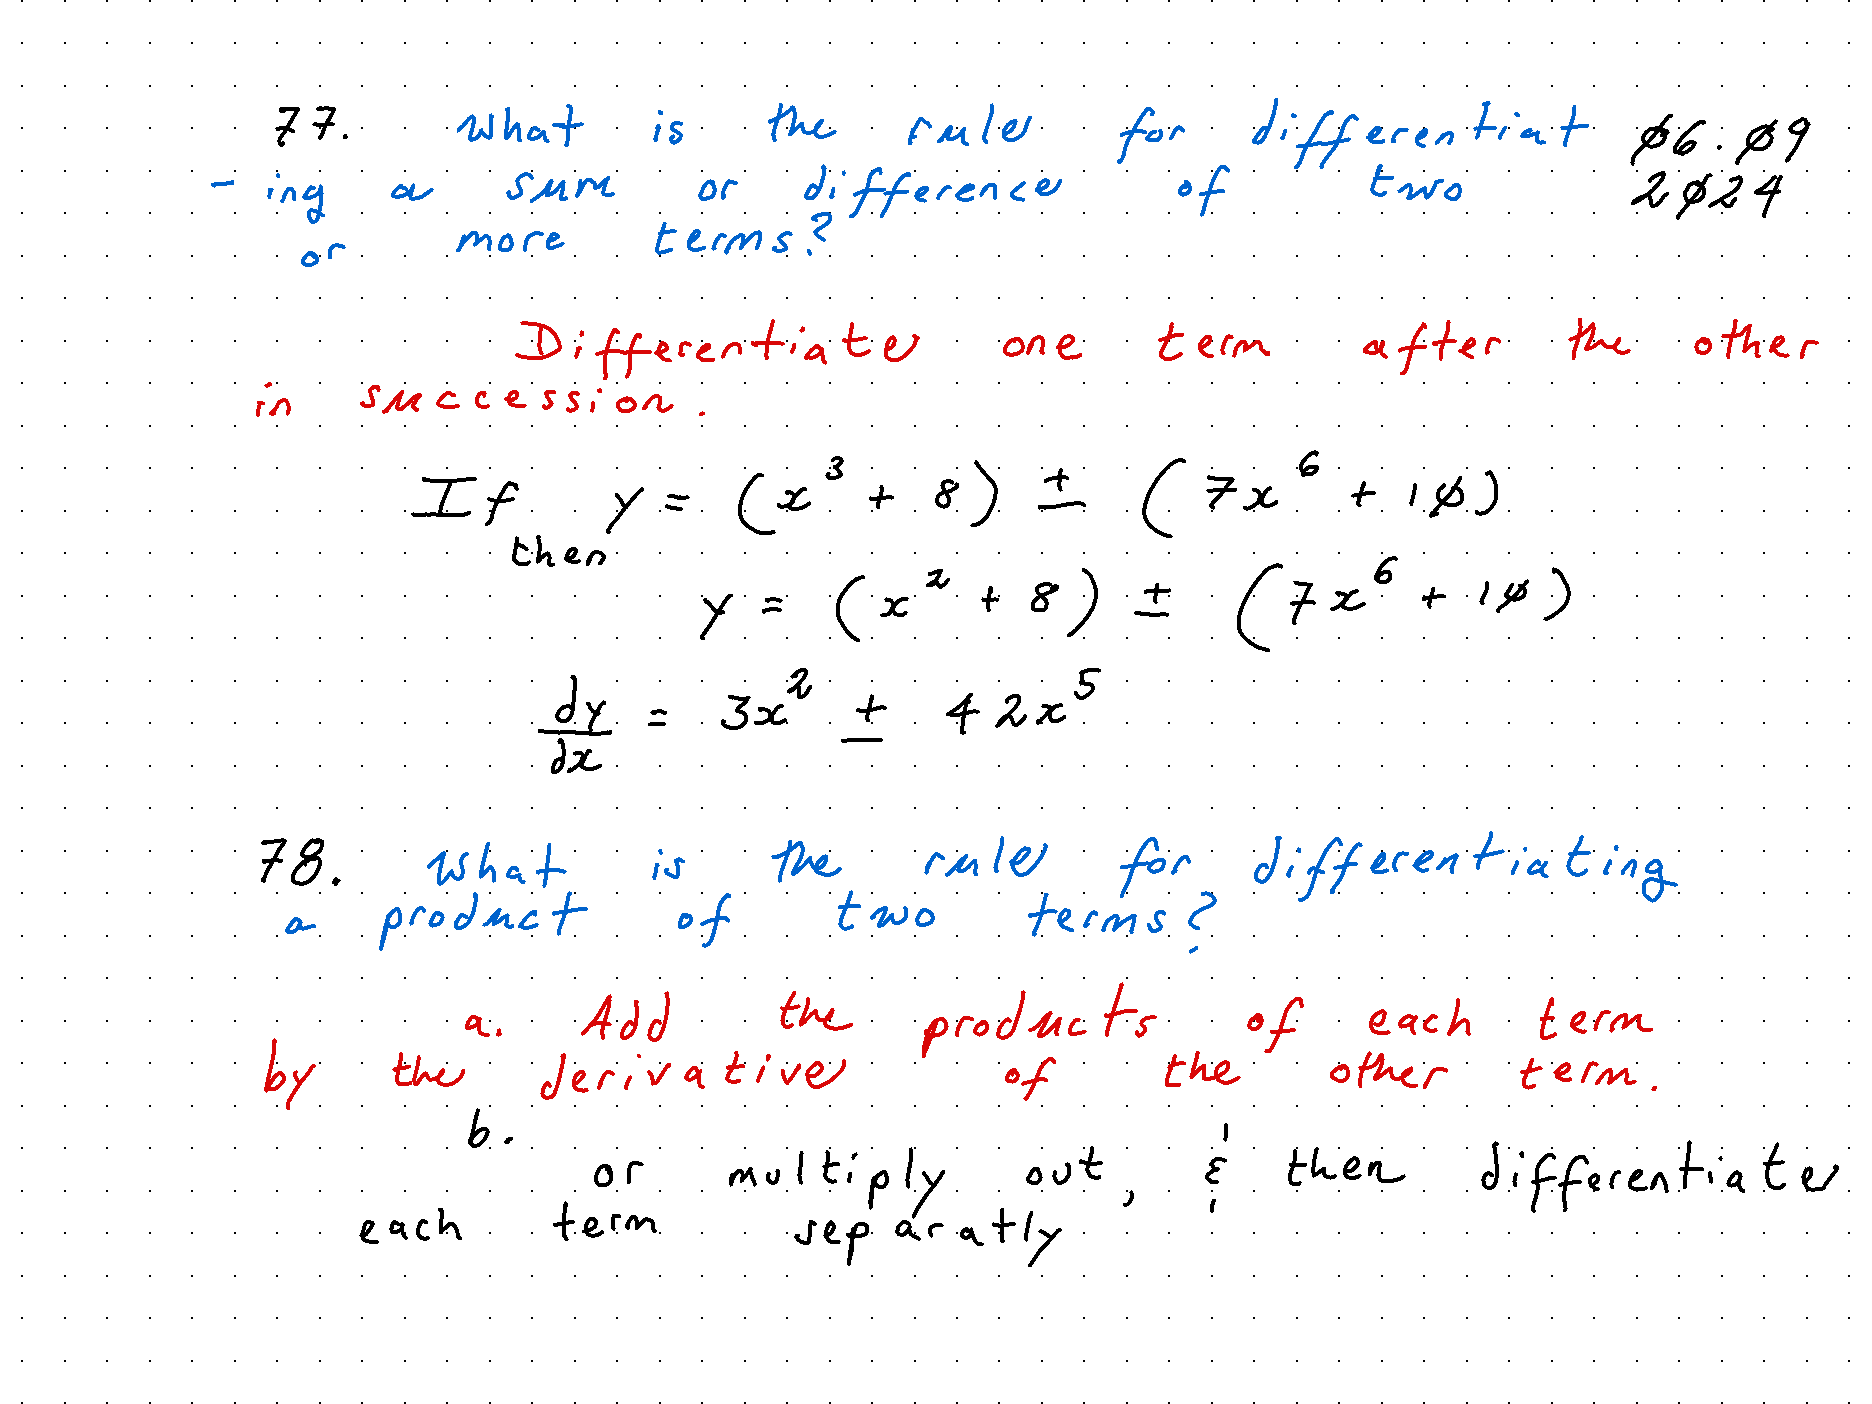 77. What is the rule for differentiat ø6.ø9
-ing a sum or difference of two 2ø24
or more terms?
Differentiate one term after the other
in succession.
If y = (x³ + 8) ± (7x⁶ + 1ø)
then
y = (x² + 8) ± (7x⁶ + 1ø)
dy/dx = 3x² ± 42x⁵
78. What is the rule for differentiating
a product of two terms?
a. Add the products of each term
by the derivative of the other term.
b.
or multiply out, & then differentiate
each term separatly